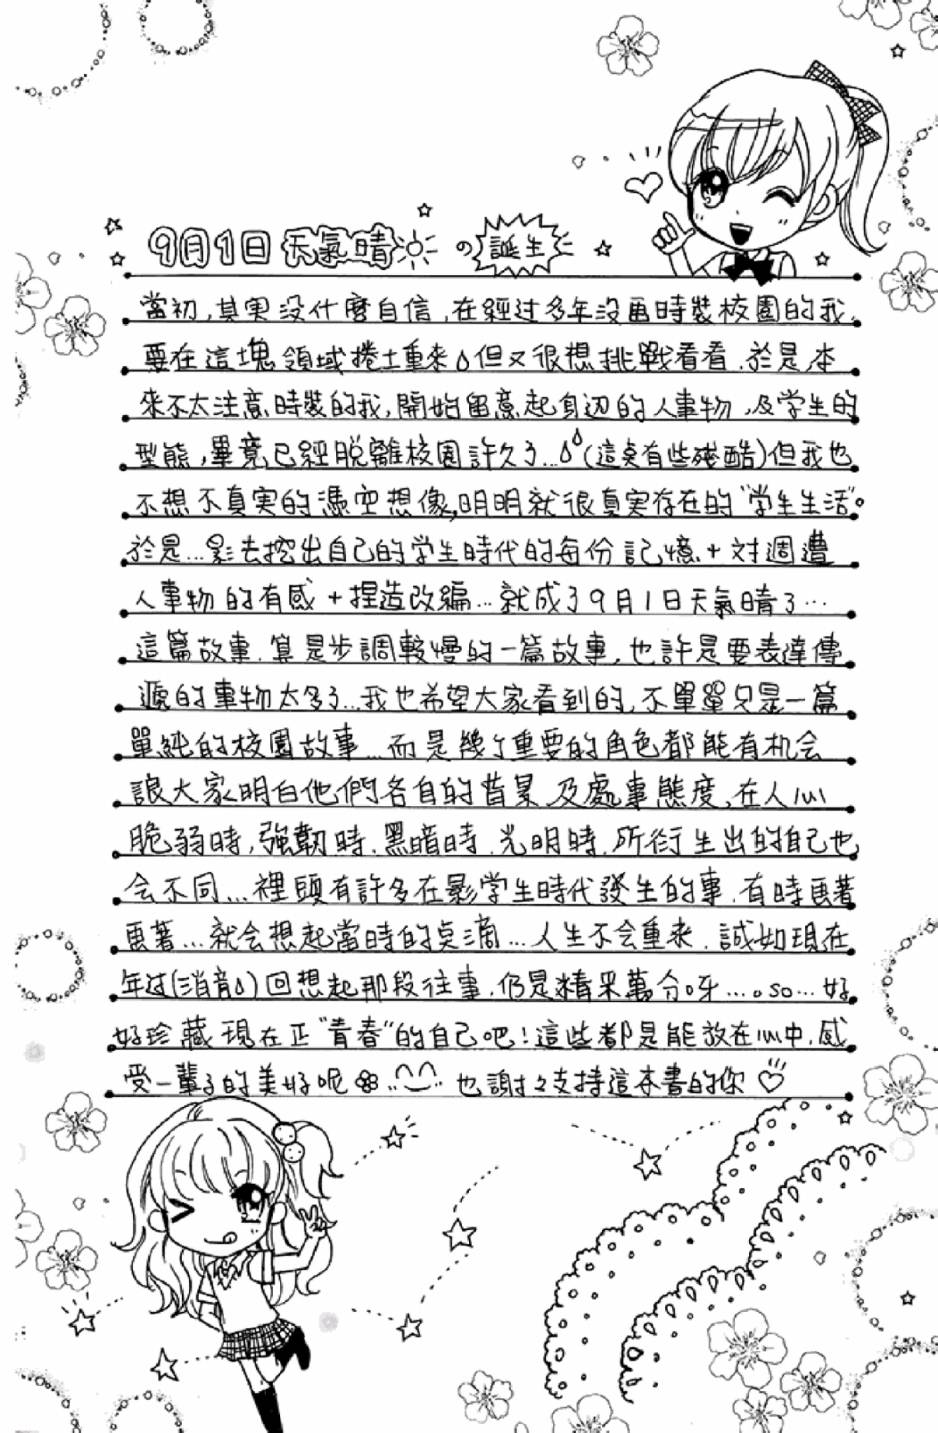 9月1日天氣晴の誕生
當初,其実没什麼自信,在經过多年沒画時裝校園的我,
要在這塊領域捲土重來但又很想挑戰看看.於是,本
來不太注意時裝的我,開始留意起身边的人事物,及学生的
型態,畢竟已經脫離校園許久了...(這桌有些殘酷)但我也
不想不真実的憑空想像,明明就很真実存在的"学生生活"。
於是...影去挖出自己的学生時代的每份記憶+对週遭
人事物的有感+捏造改編...就成了9月1日天氣晴了...
這篇故事.算是步調較慢的一篇故事,也許是要表達傳
遞的事物太多了...我也希望大家看到的,不單單只是一篇
單純的校園故事...而是幾个重要的角色都能有机会
讓大家明白他們各自的背景及處事態度,在人心
脆弱時,強韌時.黑暗時.光明時.所衍生出的自己也
会不同...裡頭有許多在影学生時代發生的事.有時画著
画著...就会想起當時的点滴...人生不会重來.誠如現在
年过(消音)回想起那段往事.仍是精采萬分呀....so...好
好珍藏現在正"青春"的自己吧!這些都是能放在心中.感
受一輩子的美好呢 也謝々支持這本書的你♡